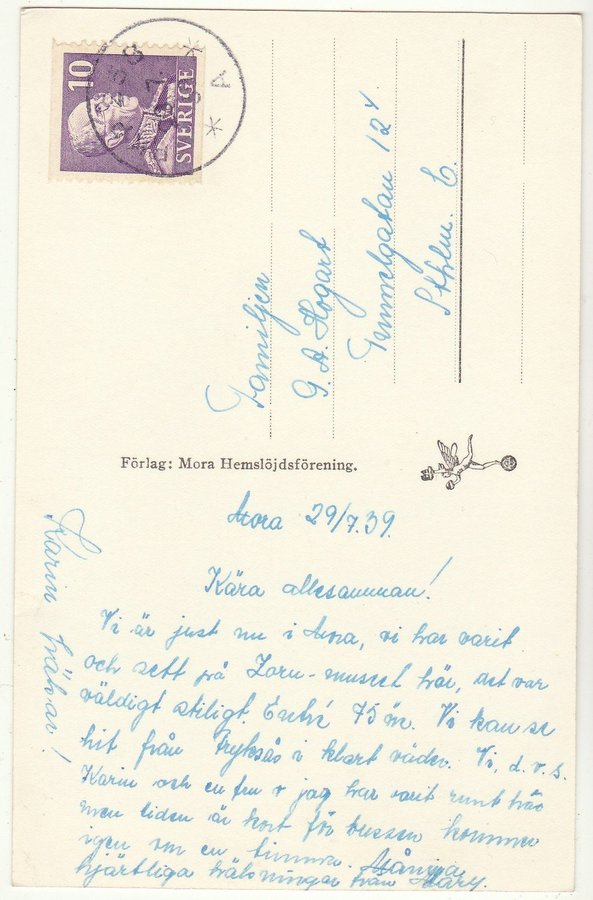 10
SVERIGE
Familjen
G. A. Hogart
Tunnelgatan 12 Y
Sthlm. C.
Förlag: Mora Hemslöjdsförening.
Mora 29/7.39.
Kära allesamman!
Vi är just nu i Mora, vi har varit
och sett på Zorn-museet här, det var
väldigt stiligt. Entré 75 öre. Vi kan se
hit från Fryksås i klart väder. Vi, d.v.s.
Karin och en fru o jag har varit runt här
men tiden är kort för bussen kommer
igen om en timma. Många
hjärtliga hälsningar från Mary.
Karin hälsar!